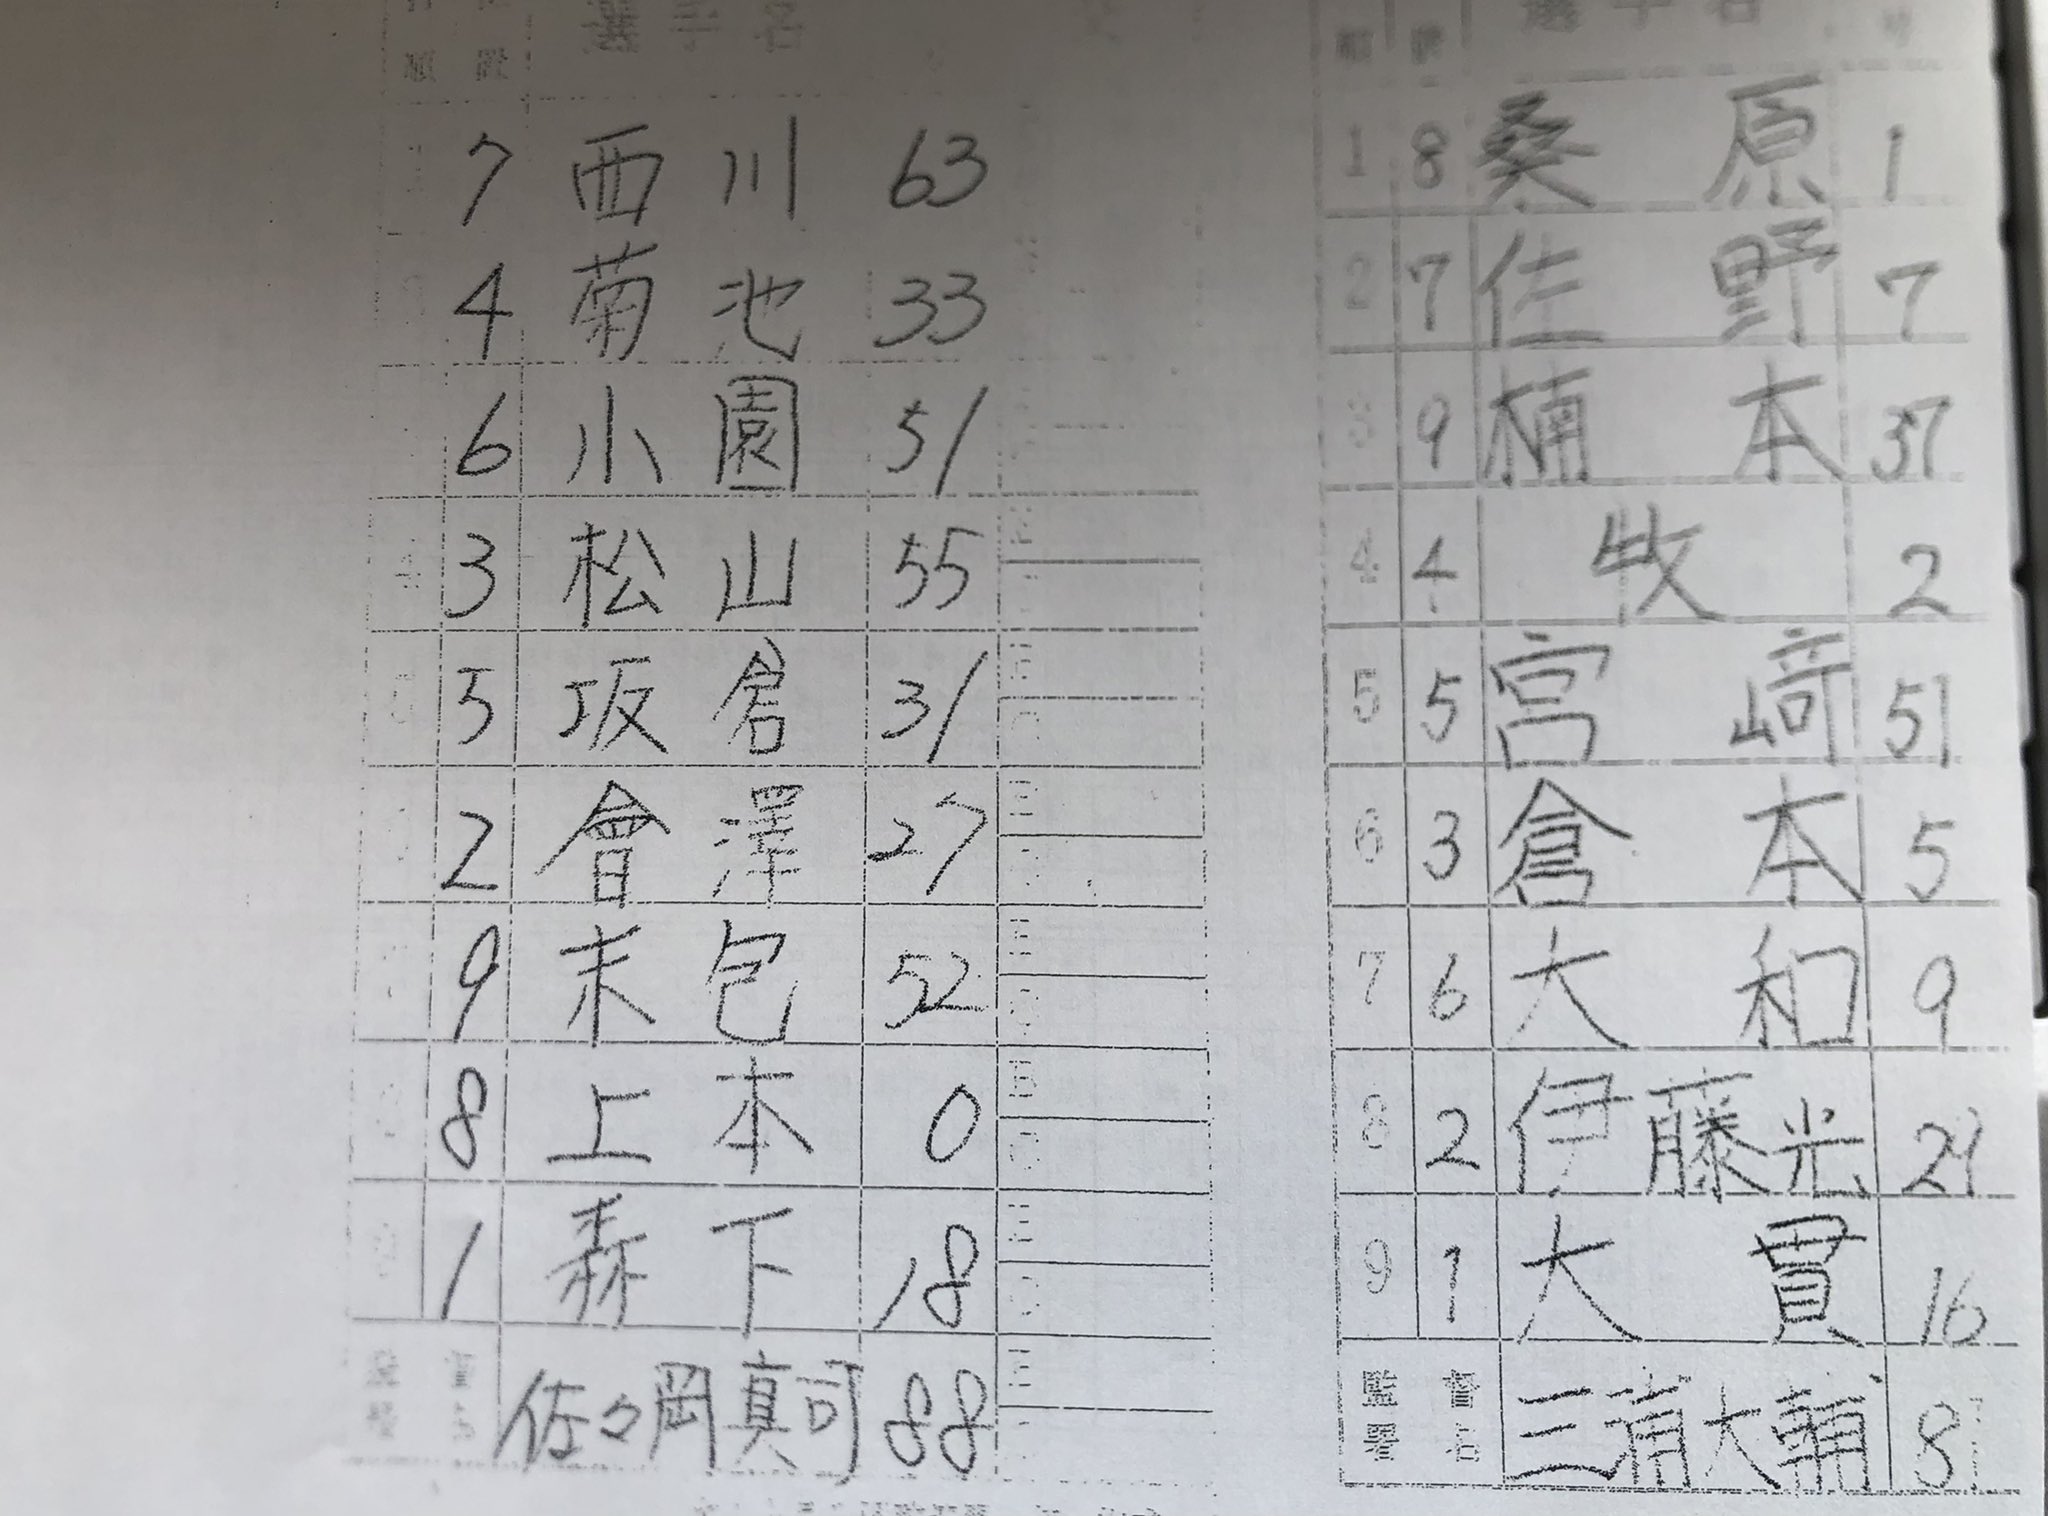 7 西川 63
4 菊池 33
6 小園 51
4 3 松山 55
5 坂倉 31
2 會澤 27
9 末包 52
8 上本 0
1 森下 18
佐々岡真司 88
選手名
1 8 桑原 1
2 7 佐野 7
3 9 楠本 37
4 4 牧 2
5 5 宮﨑 51
6 3 倉本 5
7 6 大和 9
8 2 伊藤光 29
9 1 大貫 16
監督署名 三浦大輔 81